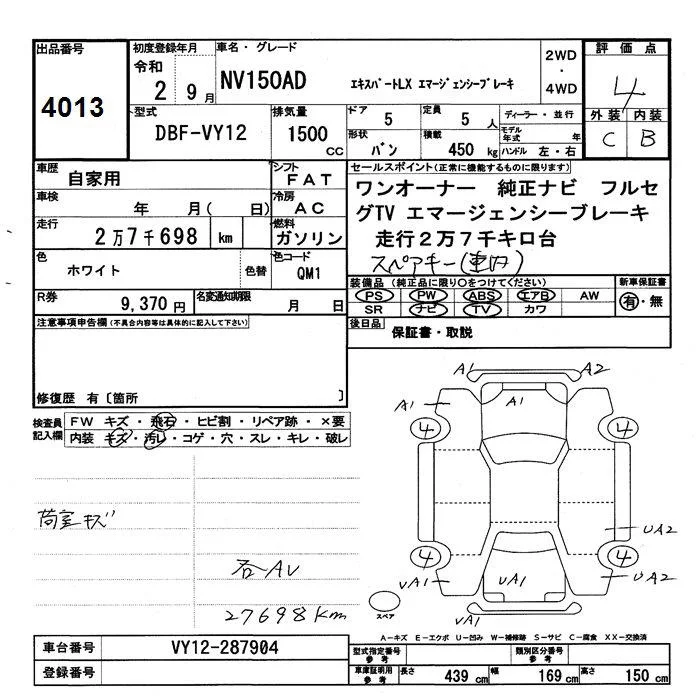 出品番号 4013
初度登録年月 令和 2年 9月
車名・グレード
NV150AD エキスパートLX エマージェンシーブレーキ
2WD
・
4WD
評価点
4
外装 内装
C B
型式 DBF-VY12
排気量 1500 CC
ドア 5
定員 5 人
形状 バン
積載 450 kg
ディーラー・並行
モデル年式 年
ハンドル 左・右
車歴 自家用
シフト FAT
車検 年 月( 日)
冷房 AC
走行 2万7千698 km
燃料 ガソリン
色 ホワイト 色替
色コード QM1
R券 9,370円
名変通知期限 月 日
セールスポイント(正常に機能するものに限ります)
ワンオーナー 純正ナビ フルセ
グTV エマージェンシーブレーキ
走行2万7千キロ台
スペアキー(車内)
装備品 (純正品に限り〇をつけてください)
PS PW ABS エアB AW
SR ナビ TV カワ
新車保証書
有・無
後日品 保証書・取説
注意事項申告欄(不具合内容等は具体的に記入して下さい)
修復歴 有〔箇所 〕
検査員記入欄
FW キズ・飛石・ヒビ割・リペア跡・×要
内装 キズ・汚レ・コゲ・穴・スレ・キレ・破レ
荷室キズ
各AU
27698km
A1 A2
A1 A1
4 4
UA2
4 4
UA1 UA1 UA2
UA1
スペア
A-キズ E-エクボ U-凹み W-補修跡 S-サビ C-腐食 XX-交換済
車台番号 VY12-287904
登録番号
型式指定番号 参考
類別区分番号 参考
車庫証明用 参考 長さ 439 cm 幅 169 cm 高さ 150 cm